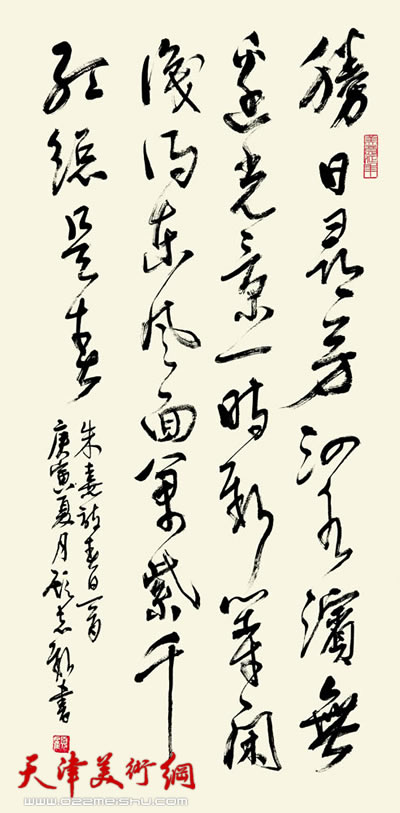 勝日尋芳泗水濱無
邊光景一時新等閑
識得東風面萬紫千
紅總是春
朱熹詩春日一首
庚寅夏月顧志新書
天津美術網
www.022meishu.com